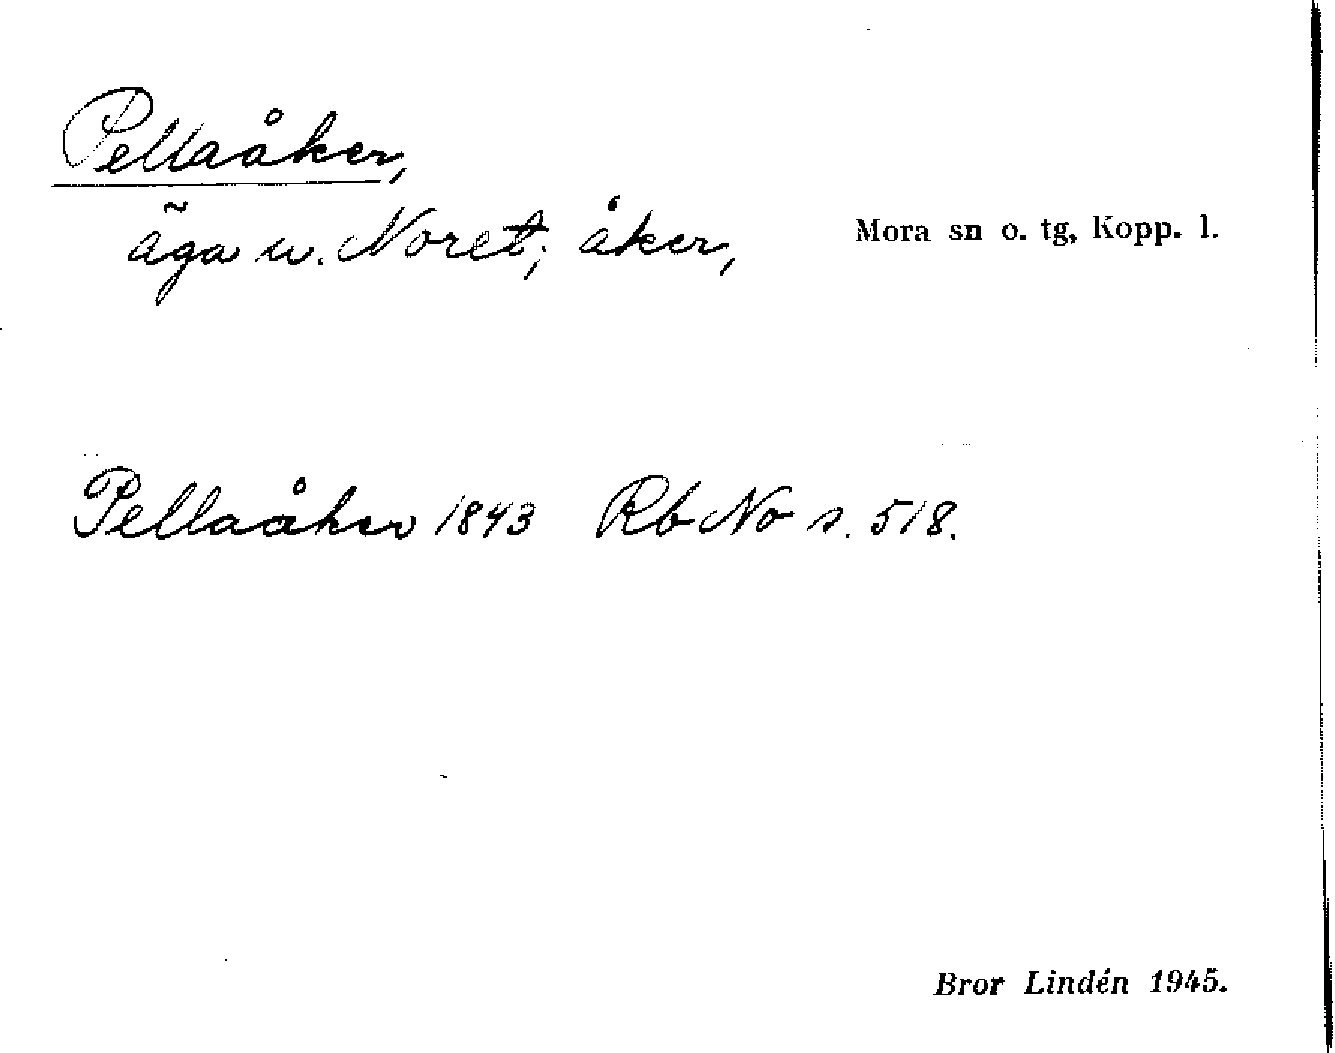 Pellaåker,
äga u. Noret; åker, Mora sn o. tg, Kopp. l.
Pellaåker 1843 Rb No s. 518.
Bror Lindén 1945.